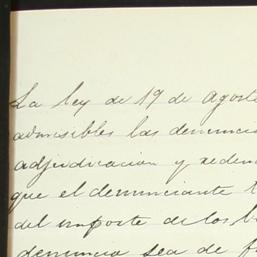 La ley de 19 de Agosto
admisibles las denuncia
adjudicacion y reden
que el denunciante t
del importe de los b
denuncia sea de f